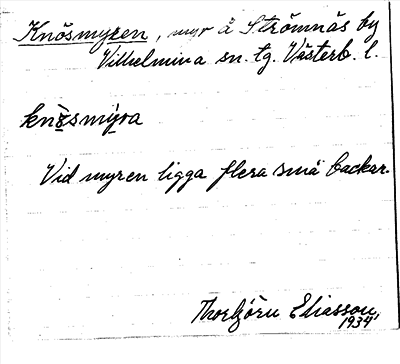 Knösmyren, myr å Strömnäs by
Vilhelmina sn. tg. Västerb. l.
knösmyra
Vid myren ligga flera små backar.
Thorbjörn Eliasson,
1934